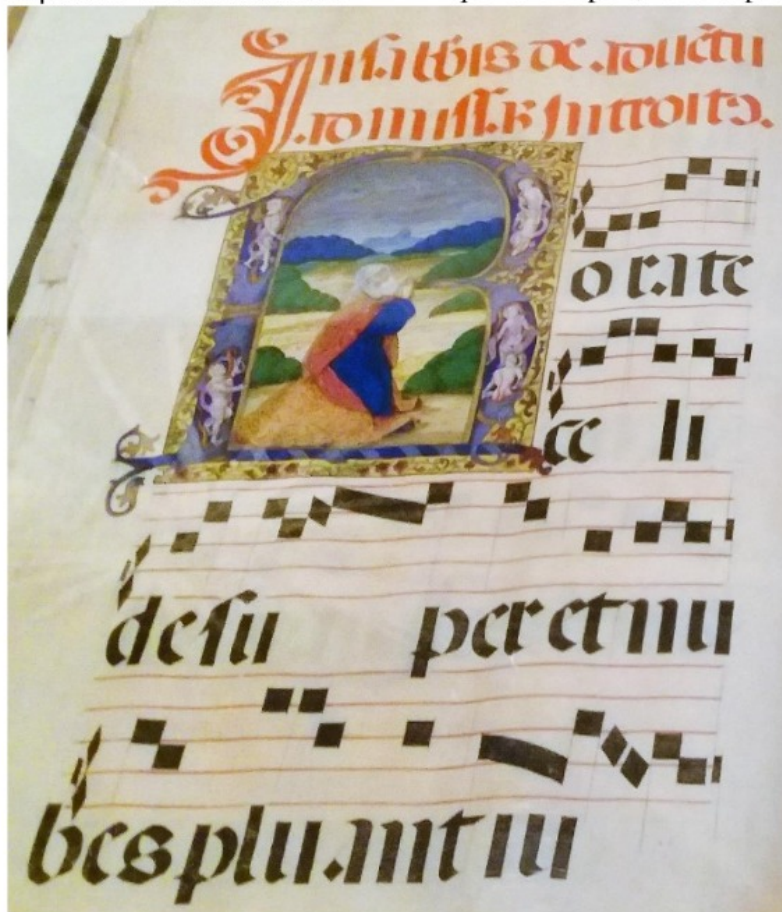 In sabbis de aduētu
ad missā Introitꝰ.
Rorate
ce li
desu per et nu
bes pluant iu